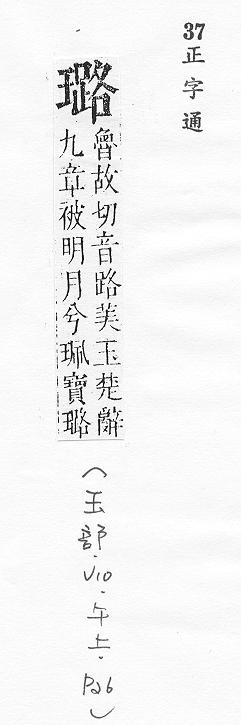 37
正字通
璐
魯故切音路美玉楚辭
九章被明月兮珮寶璐
(玉部.V10.午上.P26)